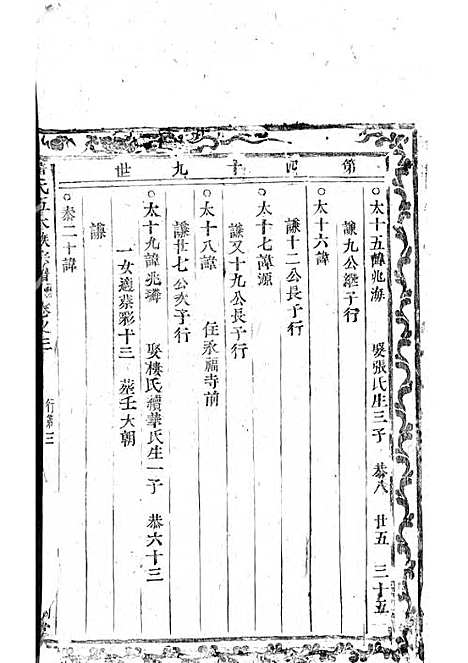 第四十九世
太十五諱兆海　娶張氏生三子　恭八　廿五　三十五
謙九公繼子行
太十六諱
謙十二公長子行
太十七諱源
謙又十九公長子行
太十八諱　住永福寺前
謙廿七公次子行
太十九諱兆璘　娶樓氏續華氏生一子　恭六十三
一女適蔡彩十三　葬壬大朝
謙
泰二十諱
氏五大族宗譜
行第三